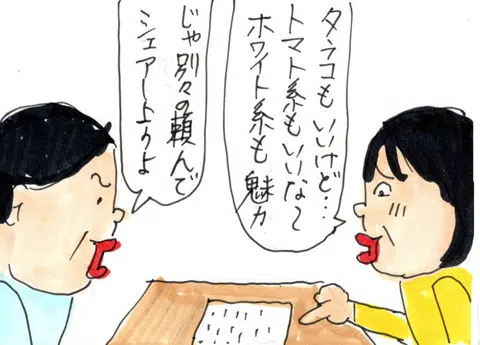 タラコもいいけど…
トマト系もいいな〜
ホワイト系も魅力
じゃ別々の頼んで
シェアーしようよ